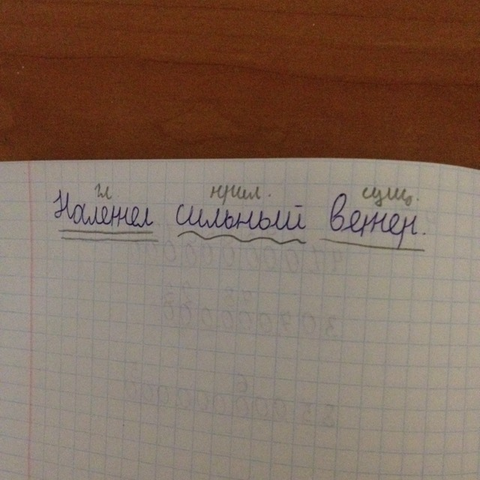 гл прил. сущ.
Налетел сильный ветер.